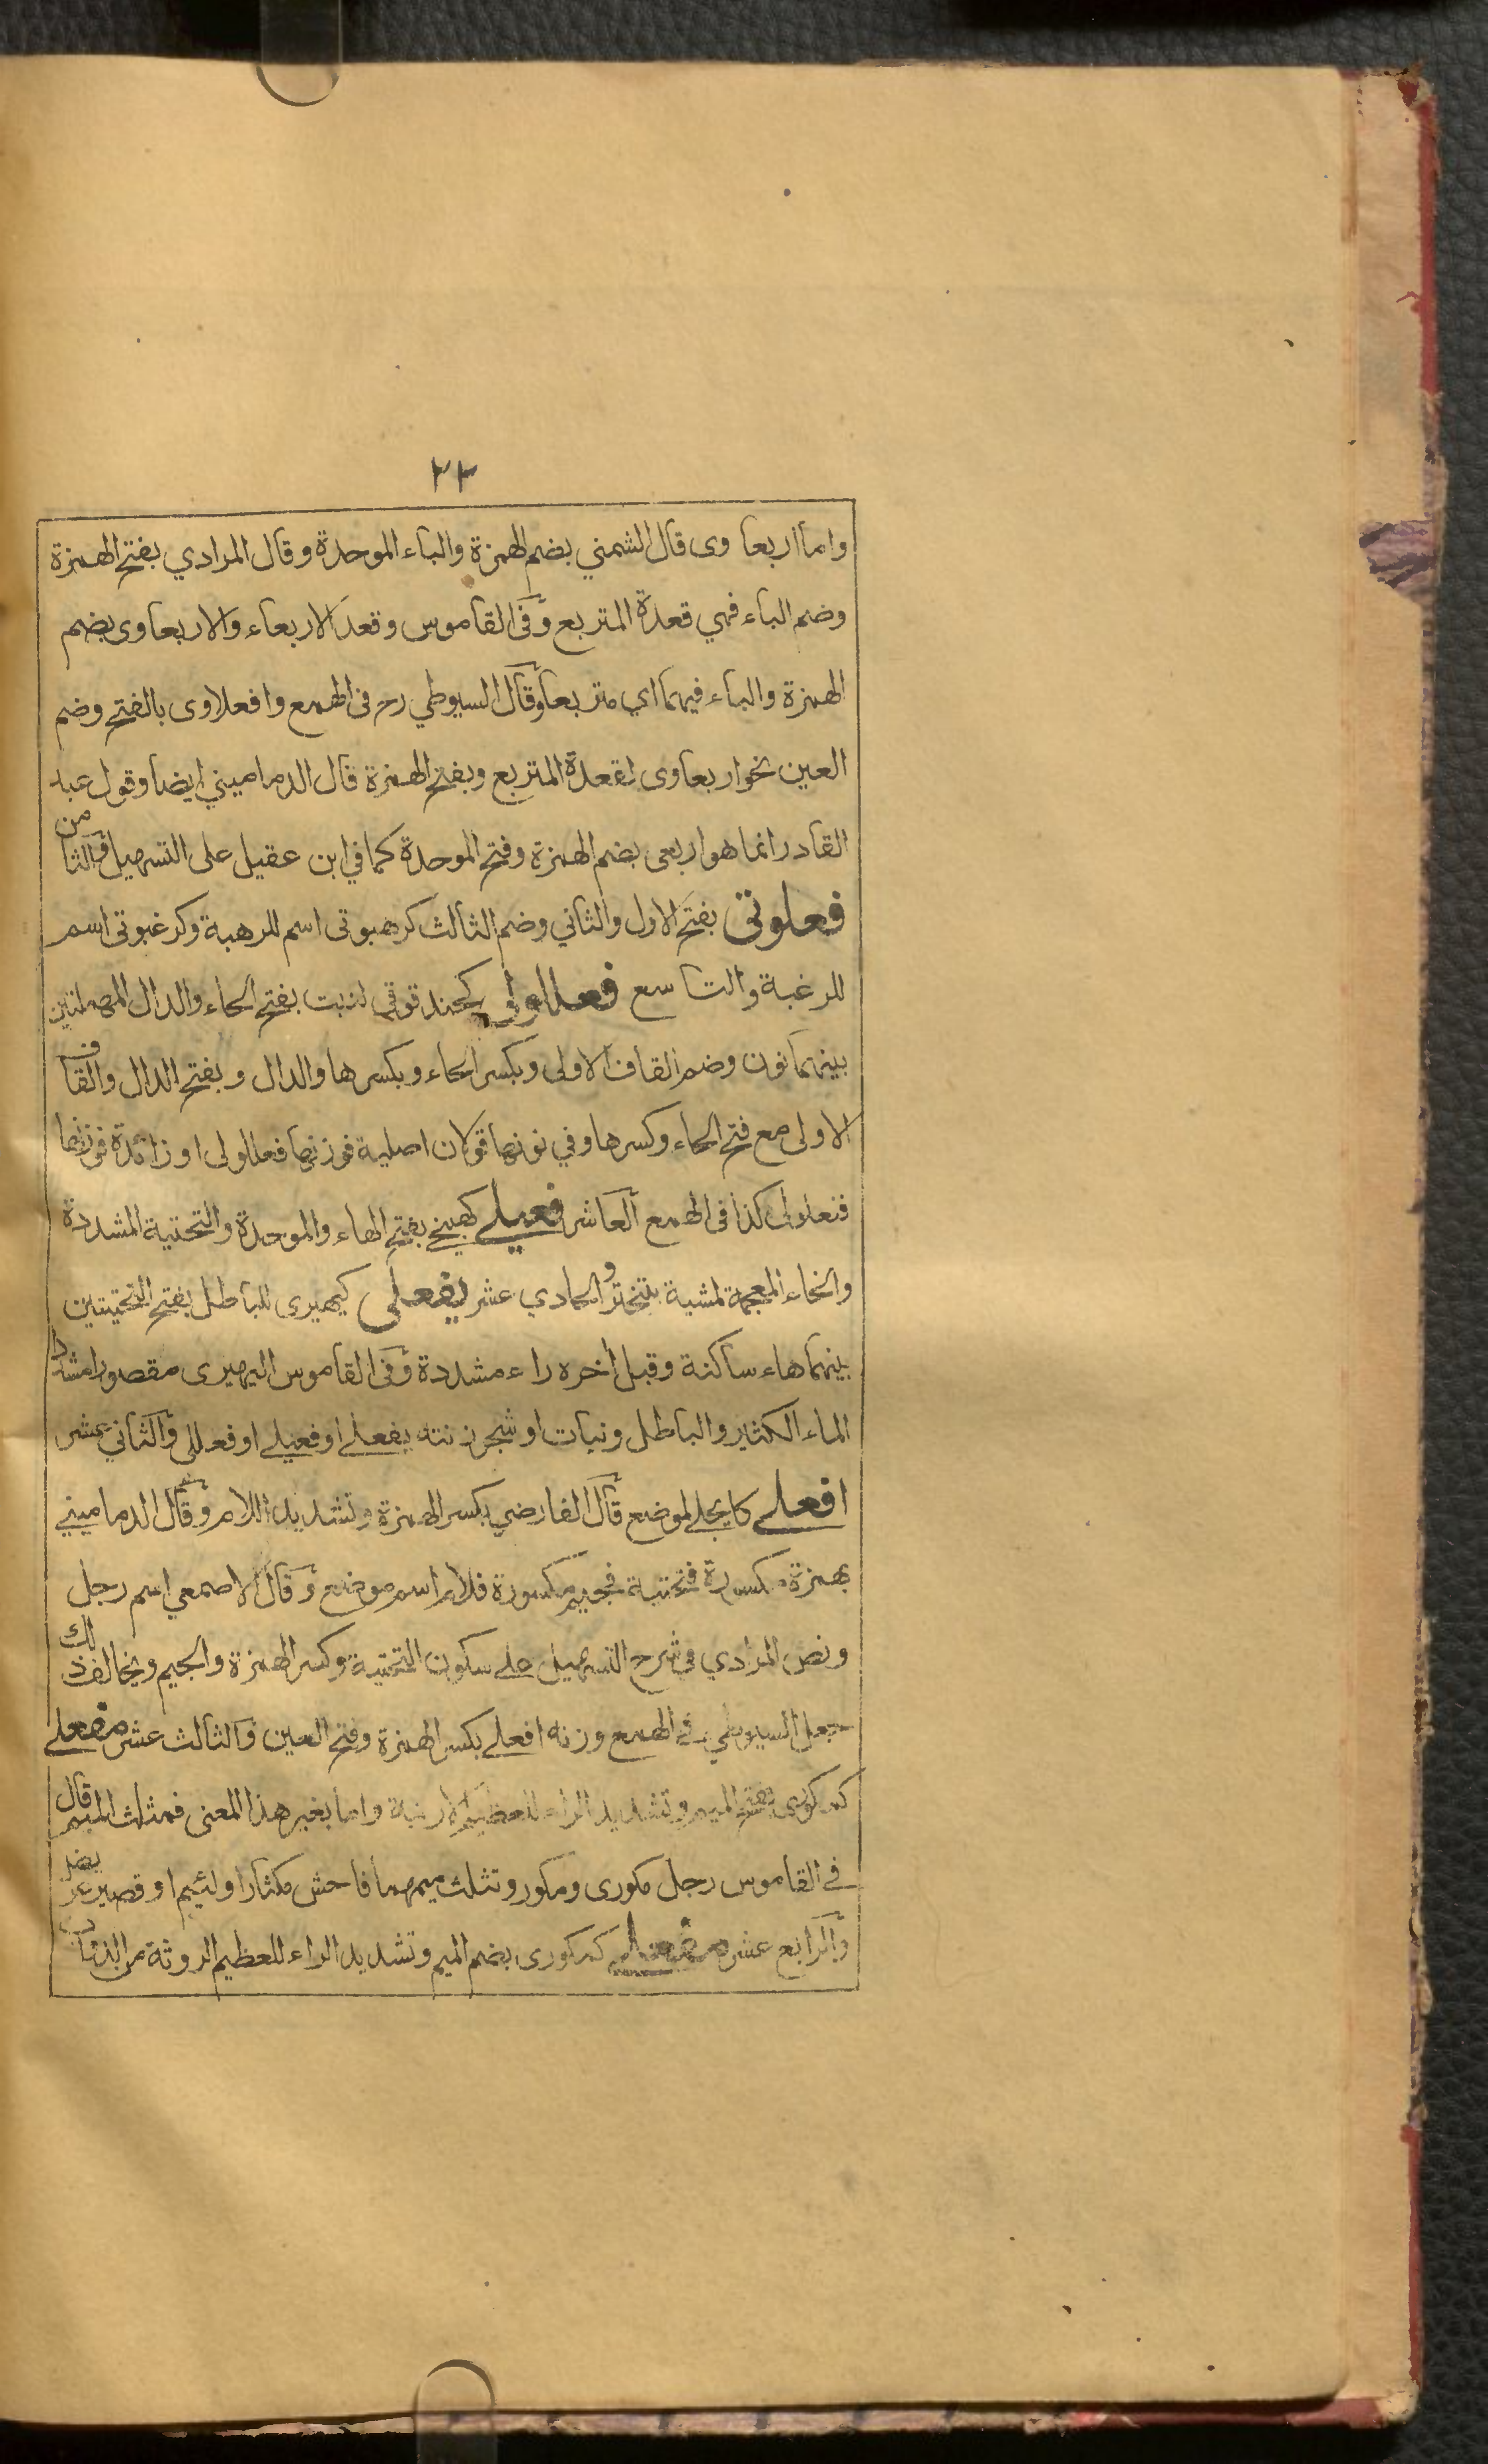 ٣٣
واما اربعا وى قال الشمني بضم الهمزة والباء الموحدة وقال المرادي بفتح الهمزة
وضم الباء فهي قعدة المتربع وفى القاموس وقعد الاربعاء والاربعاوى بضم
الهمزة والباء فيهما اي متربعا وقال السيوطي رح فى الهمع وافعلاوى بالفتح وضم
العين نحو اربعاوى لقعدة المتربع وبفتح الهمزة قال الدماميني ايضا وقول عبد
القادر انما هو اربعى بضم الهمزة وفتح الموحدة كما في ابن عقيل على التسهيل والثامن
فعلوتى بفتح الاول والثاني وضم الثالث كرهبوتى اسم للرهبة وكرغبوتى اسم
للرغبة والتاسع فعللولى كحندقوقى لنبت بفتح الحاء والدال المهملتين
بينهما نون وضم القاف الاولى وبكسر الحاء وبكسرها والدال وبفتح الدال والقاف
الاولى مع فتح الحاء وكسرها وفي نونها قولان اصلية فوزنها فعللولى او زائدة فوزنها
فنعلولى كذا فى الهمع العاشر فعيلے كهبيخے بفتح الهاء والموحدة والتحتية المشددة
والخاء المعجمة لمشية بتبختر والحادي عشر يفعلى كيهيرى للباطل بفتح التحتيتين
بينهما هاء ساكنة وقبل اخره راء مشددة وفى القاموس اليهيرى مقصورا مشددا
الماء الكثير والباطل ونبات او شجر زنته يفعلے او فعيلے او فعللى والثاني عشر
افعلے كايجلے لموضع قال الفارضي بكسر الهمزة وتشديد اللام وقال الدماميني
بهمزة مكسورة فتحتية فجيم مكسورة فلام اسم موضع وقال الاصمعي اسم رجل
ونص المرادي في شرح التسهيل علے سكون التحتية وكسر الهمزة والجيم ويخالف ذلك
جعل السيوطي في الهمع وزنه افعلے بكسر الهمزة وفتح العين والثالث عشر مفعلے
كمكورى بفتح الميم وتشديد الراء لعظيم الارنبة واما بغير هذا المعنى فمثلث الميم قال
في القاموس رجل مكورى ومكور وتثلث ميمهما فاحش مكثار او لئيم او قصير عريض
والرابع عشر مفعلے كمكورى بضم الميم وتشديد الراء للعظيم الروثة من الدواب